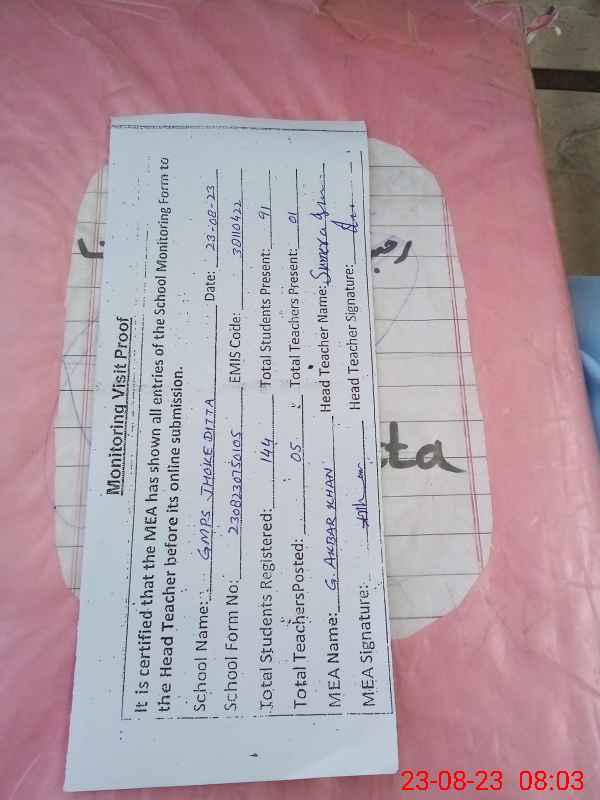 Monitoring Visit Proof
It is certified that the MEA has shown all entries of the School Monitoring Form to
the Head Teacher before its online submission.
School Name: GMPS JHOKE DITTA Date: 23-08-23
School Form No: 2308230750105 EMIS Code: 30110422
Total Students Registered: 144 Total Students Present: 91
Total TeachersPosted: 05 Total Teachers Present: 01
MEA Name: G. AKBAR KHAN Head Teacher Name:
MEA Signature: Head Teacher Signature:
tta
23-08-23 08:03